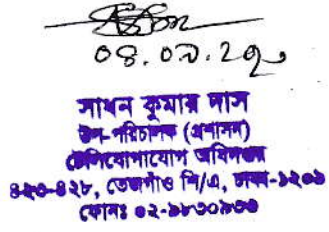 ০৪.০৯.২০
সাধন কুমার দাস
উপ-পরিচালক (প্রশাসন)
টেলিযোগাযোগ অধিদপ্তর
৪২৩-৪২৮, তেজগাঁও শি/এ, ঢাকা-১২০৮
ফোনঃ ০২-৯৮৩০৯৩৩